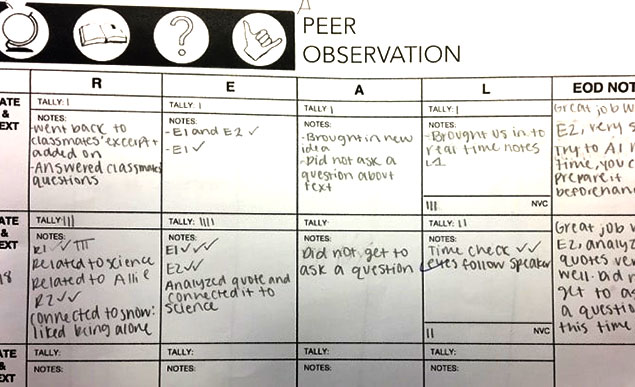 PEER
OBSERVATION
R
E
A
L
EOD NOT
ATE
&
EXT
TALLY: I
NOTES:
-went back to
classmates' excerpt +
added on
-Answered classmates
questions
TALLY: I
NOTES:
-E1 and E2 ✓
-E1 ✓
TALLY I
NOTES:
-Brought in new
idea
-Did not ask a
question about
text
TALLY: I
NOTES:
-Brought us in to
real time notes
L1
III
NVC
Great job w
E2, very s
Try to A1 n
time, you c
prepare it
beforehan
ATE
&
EXT
18
TALLY III
NOTES:
R1 ✓ III
Related to science
Related to Allie
R2 ✓✓
connected to snow:
liked being alone
TALLY: IIII
NOTES:
E1 ✓✓✓
E2 ✓✓
Analyzed quote and
connected it to
science
TALLY:
NOTES:
Did not get to
ask a question
TALLY: II
NOTES:
Time check ✓✓
eyes follow speaker
II
NVC
Great job w
E2, analyz
quotes ver
well. Did n
get to a
a questio
this time
ATE
&
TALLY:
NOTES:
TALLY:
NOTES:
TALLY:
NOTES:
TALLY:
NOTES: